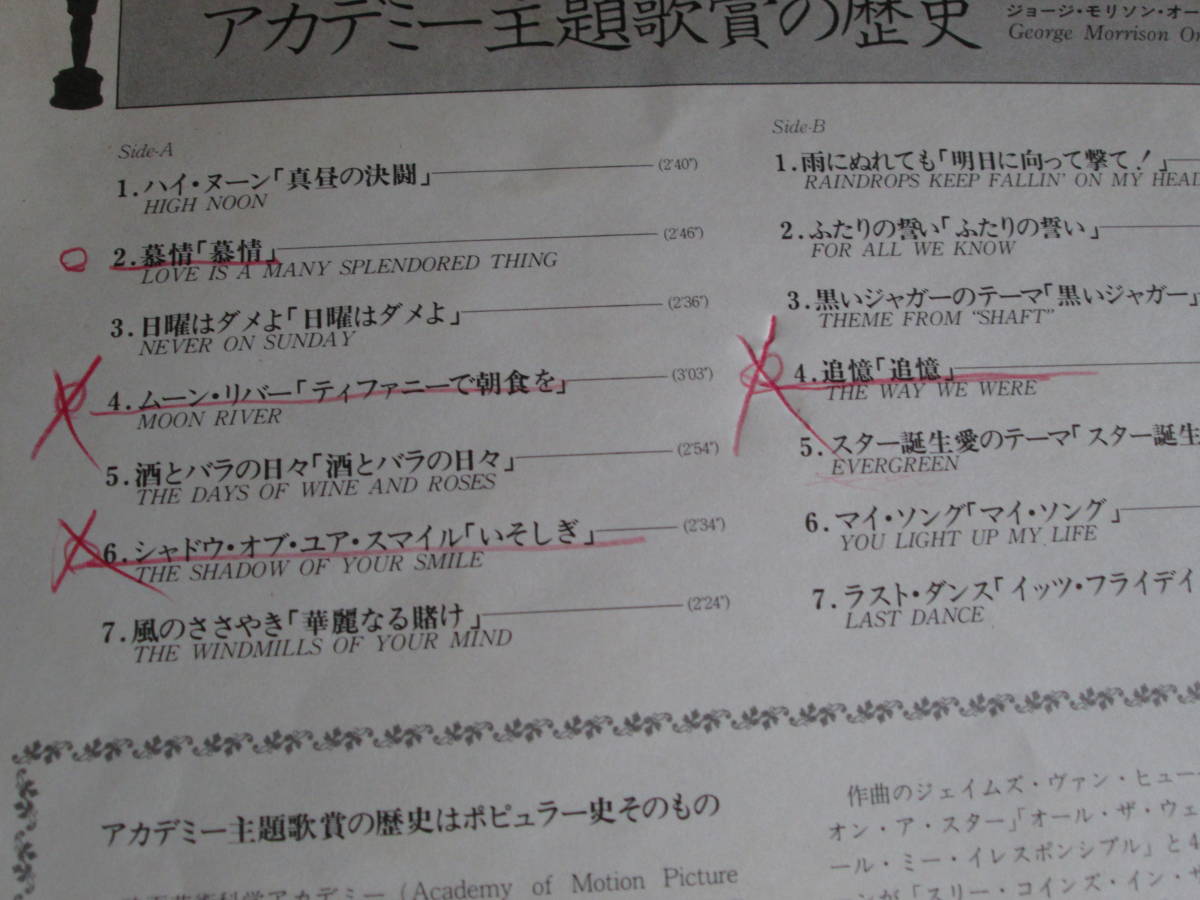 アカデミー主題歌賞の歴史
ジョージ・モリソン・オー
George Morrison Or
Side-A
1.ハイ・ヌーン「真昼の決闘」 (2'40")
HIGH NOON
2.慕情「慕情」 (2'46")
LOVE IS A MANY SPLENDORED THING
3.日曜はダメよ「日曜はダメよ」 (2'36")
NEVER ON SUNDAY
4.ムーン・リバー「ティファニーで朝食を」 (3'03")
MOON RIVER
5.酒とバラの日々「酒とバラの日々」 (2'54")
THE DAYS OF WINE AND ROSES
6.シャドウ・オブ・ユア・スマイル「いそしぎ」 (2'34")
THE SHADOW OF YOUR SMILE
7.風のささやき「華麗なる賭け」 (2'24")
THE WINDMILLS OF YOUR MIND
Side-B
1.雨にぬれても「明日に向って撃て!」
RAINDROPS KEEP FALLIN' ON MY HEAD
2.ふたりの誓い「ふたりの誓い」
FOR ALL WE KNOW
3.黒いジャガーのテーマ「黒いジャガー」
THEME FROM "SHAFT"
4.追憶「追憶」
THE WAY WE WERE
5.スター誕生愛のテーマ「スター誕生
EVERGREEN
6.マイ・ソング「マイ・ソング」
YOU LIGHT UP MY LIFE
7.ラスト・ダンス「イッツ・フライデイ
LAST DANCE
アカデミー主題歌賞の歴史はポピュラー史そのもの
アカデミー(Academy of Motion Picture
作曲のジェイムズ・ヴァン・ヒュー
オン・ア・スター」「オール・ザ・ウェ
ール・ミー・イレスポンシブル」と4
ンが「スリー・コインズ・イン・ザ